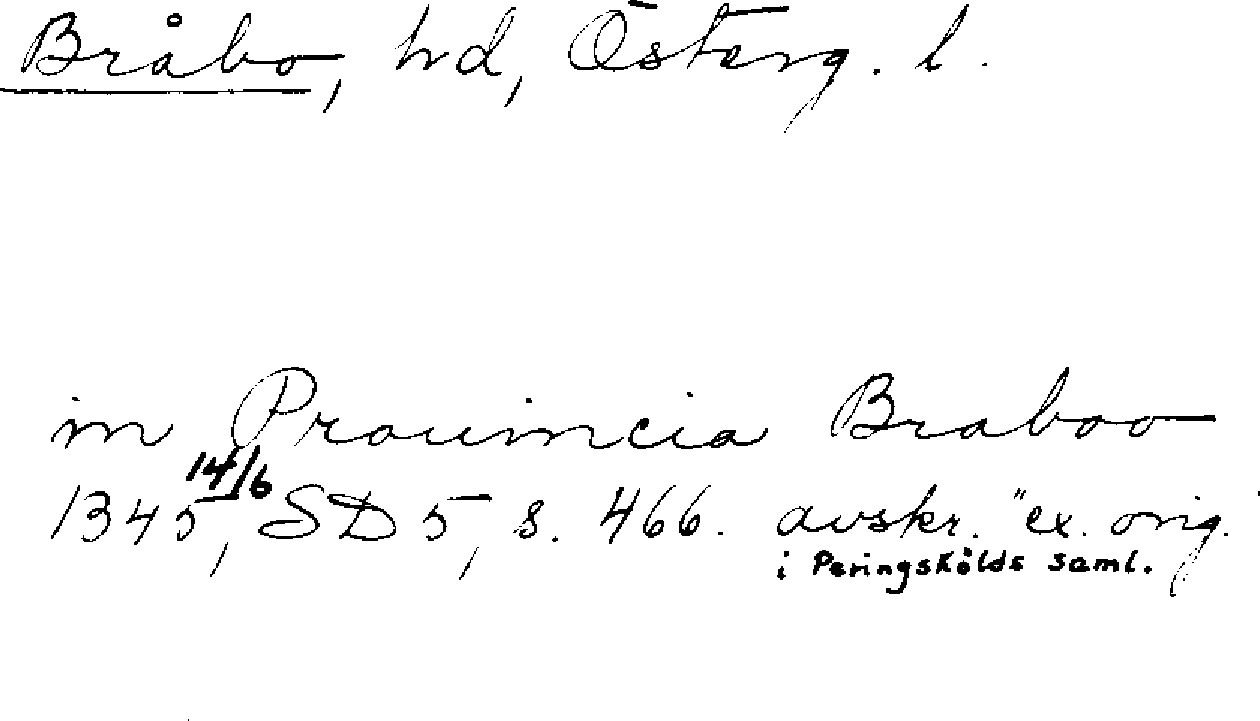 Bråbo, hd, Österg. l.
in Prouincia Braboo
1345 14/6, SD 5, s. 466. avskr. "ex. orig."
i Peringskölds saml.